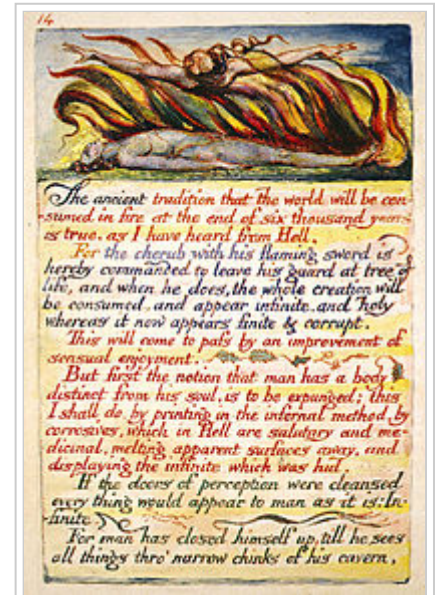 14
The ancient tradition that the world will be con-
-sumed in fire at the end of six thousand years
is true. as I have heard from Hell.
For the cherub with his flaming sword is
hereby commanded to leave his guard at tree of
life, and when he does, the whole creation will
be consumed, and appear infinite. and holy
whereas it now appears finite & corrupt.
This will come to pass by an improvement of
sensual enjoyment.
But first the notion that man has a body
distinct from his soul, is to be expunged; this
I shall do, by printing in the infernal method, by
corrosives, which in Hell are salutary and me-
dicinal, melting apparent surfaces away, and
displaying the infinite which was hid.
If the doors of perception were cleansed
every thing would appear to man as it is: In-
finite
For man has closed himself up, till he sees
all things thro' narrow chinks of his cavern.